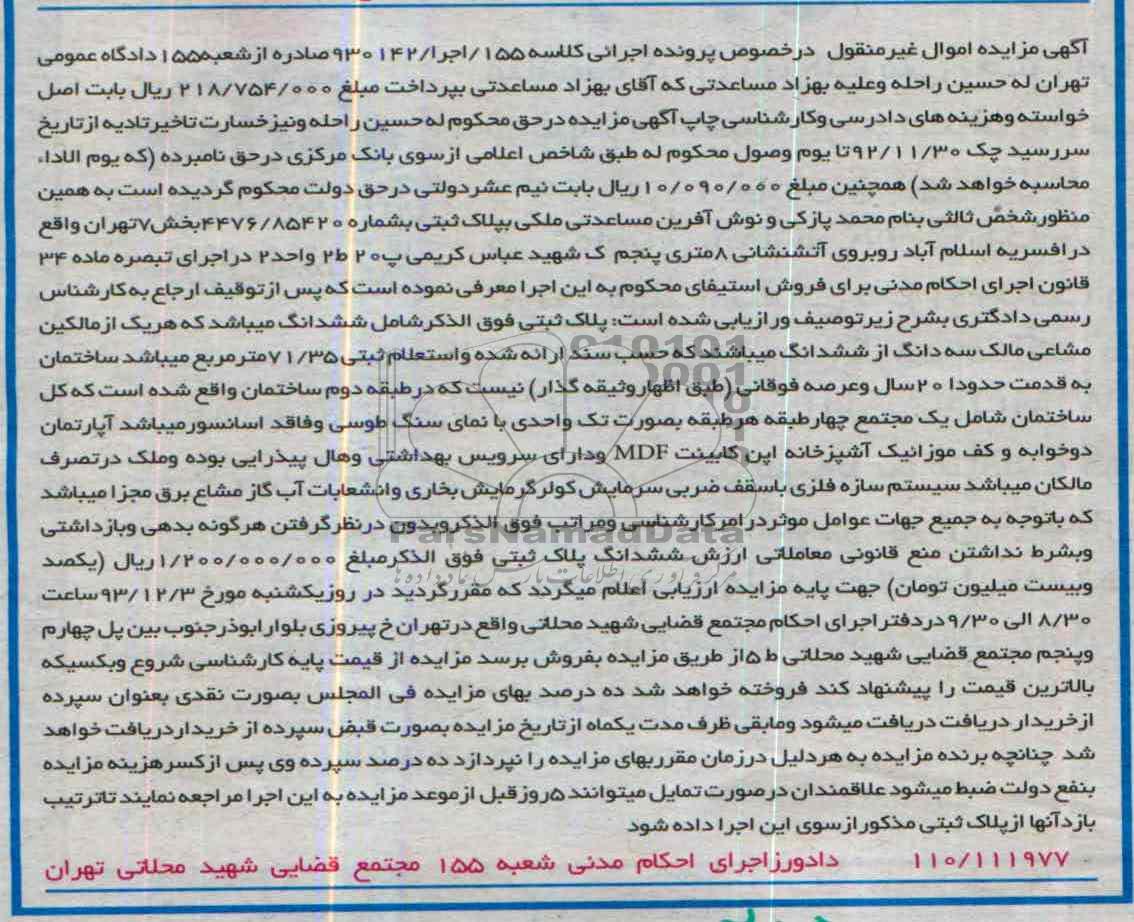 آگهی مزایده اموال غیرمنقول درخصوص پرونده اجرائی کلاسه ۱۵۵/اجرا/۹۳۰۱۴۲ صادره ازشعبه۱۵۵دادگاه عمومی
تهران له حسین راحله وعلیه بهزاد مساعدتی که آقای بهزاد مساعدتی بپرداخت مبلغ ۲۱۸/۷۵۴/۰۰۰ ریال بابت اصل
خواسته وهزینه های دادرسی وکارشناسی چاپ آگهی مزایده درحق محکوم له حسین راحله ونیزخسارت تاخیرتادیه ازتاریخ
سررسید چک ۹۲/۱۱/۳۰تا یوم وصول محکوم له طبق شاخص اعلامی ازسوی بانک مرکزی درحق نامبرده (که یوم الاداء
محاسبه خواهد شد) همچنین مبلغ ۱۰/۰۹۰/۰۰۰ریال بابت نیم عشردولتی درحق دولت محکوم گردیده است به همین
منظورشخص ثالثی بنام محمد پازکی و نوش آفرین مساعدتی ملکی بپلاک ثبتی بشماره ۴۴۷۶/۸۵۴۲۰بخش۷تهران واقع
درافسریه اسلام آباد روبروی آتشنشانی ۸متری پنجم ک شهید عباس کریمی پ۲۰ ط۲ واحد۲ دراجرای تبصره ماده ۳۴
قانون اجرای احکام مدنی برای فروش استیفای محکوم به این اجرا معرفی نموده است که پس ازتوقیف ارجاع به کارشناس
رسمی دادگتری بشرح زیرتوصیف ورازیابی شده است: پلاک ثبتی فوق الذکرشامل ششدانگ میباشد که هریک ازمالکین
مشاعی مالک سه دانگ از ششدانگ میباشند که حسب سند ارائه شده واستعلام ثبتی ۷۱/۳۵مترمربع میباشد ساختمان
به قدمت حدودا ۲۰سال وعرصه فوقانی (طبق اظهاروثیقه گذار) نیست که درطبقه دوم ساختمان واقع شده است که کل
ساختمان شامل یک مجتمع چهارطبقه هرطبقه بصورت تک واحدی با نمای سنگ طوسی وفاقد اسانسورمیباشد آپارتمان
دوخوابه و کف موزائیک آشپزخانه اپن کابینت MDF ودارای سرویس بهداشتی وهال پیذرایی بوده وملک درتصرف
مالکان میباشد سیستم سازه فلزی باسقف ضربی سرمایش کولرگرمایش بخاری وانشعابات آب گاز مشاع برق مجزا میباشد
که باتوجه به جمیع جهات عوامل موثردرامرکارشناسی ومراتب فوق الذکروبدون درنظرگرفتن هرگونه بدهی وبازداشتی
وبشرط نداشتن منع قانونی معاملاتی ارزش ششدانگ پلاک ثبتی فوق الذکرمبلغ ۱/۲۰۰/۰۰۰/۰۰۰ریال (یکصد
وبیست میلیون تومان) جهت پایه مزایده ارزیابی اعلام میگردد که مقررگردید در روزیکشنبه مورخ ۹۳/۱۲/۳ساعت
۸/۳۰ الی ۹/۳۰دردفتراجرای احکام مجتمع قضایی شهید محلاتی واقع درتهران خ پیروزی بلوارابوذرجنوب بین پل چهارم
وپنجم مجتمع قضایی شهید محلاتی ط ۵از طریق مزایده بفروش برسد مزایده از قیمت پایه کارشناسی شروع وبکسیکه
بالاترین قیمت را پیشنهاد کند فروخته خواهد شد ده درصد بهای مزایده فی المجلس بصورت نقدی بعنوان سپرده
ازخریدار دریافت دریافت میشود ومابقی ظرف مدت یکماه ازتاریخ مزایده بصورت قبض سپرده از خریداردریافت خواهد
شد چنانچه برنده مزایده به هردلیل درزمان مقرربهای مزایده را نپردازد ده درصد سپرده وی پس ازکسرهزینه مزایده
بنفع دولت ضبط میشود علاقمندان درصورت تمایل میتوانند ۵روزقبل ازموعد مزایده به این اجرا مراجعه نمایند تاترتیب
بازدآنها ازپلاک ثبتی مذکورازسوی این اجرا داده شود
۱۱۰/۱۱۱۹۷۷ دادورزاجرای احکام مدنی شعبه ۱۵۵ مجتمع قضایی شهید محلاتی تهران
ParsNamadData